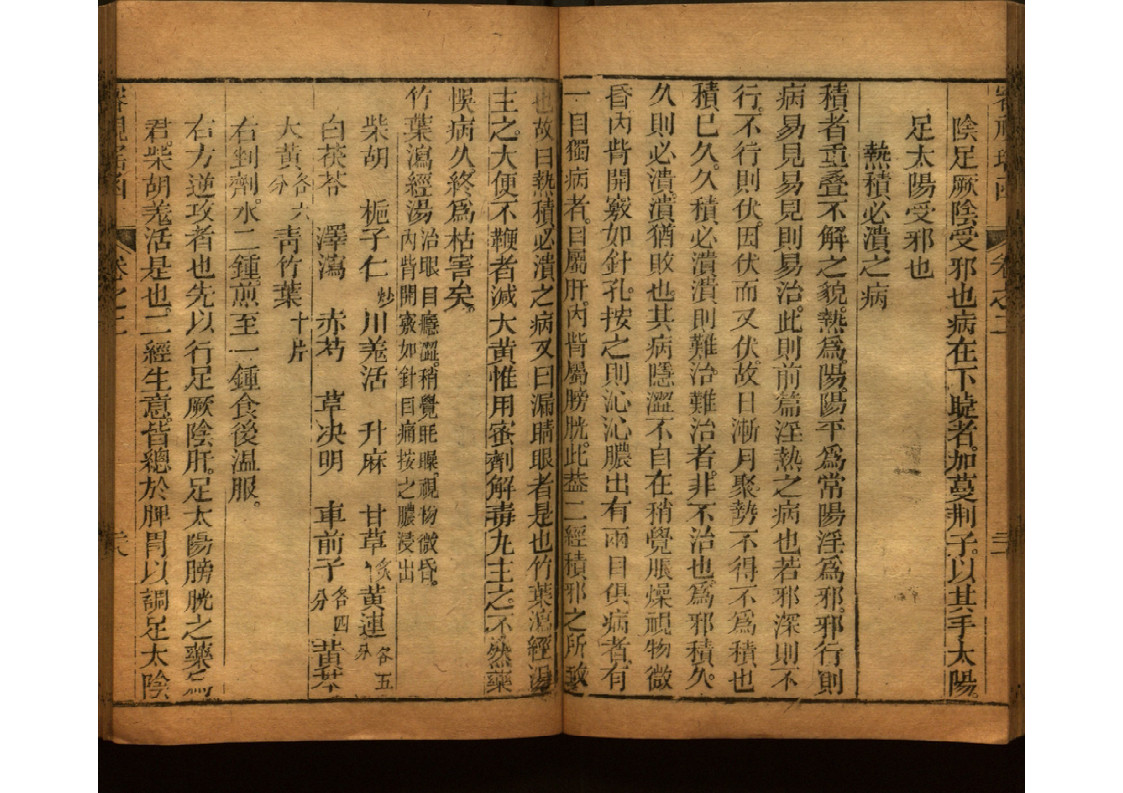 陰足厥陰受邪也病在下睫者加蔓荆子以其手太陽
足太陽受邪也
熱積必潰之病
積者重疊不解之貌熱爲陽陽平爲常陽淫爲邪邪行則
病易見易見則易治此則前篇淫熱之病也若邪深則不
行不行則伏因伏而又伏故日漸月聚勢不得不爲積也
積已久久積必潰潰則難治難治者非不治也爲邪積久
久則必潰潰猶敗也其病隱澀不自在稍覺脹燥視物微
昏內眥開竅如針孔按之則沁沁膿出有兩目俱病者有
一目獨病者目屬肝內眥屬膀胱此葢二經積邪之所致
也故曰熱積必潰之病又曰漏睛眼者是也竹葉瀉經湯
主之大便不鞕者減大黃惟用蜜劑解毒丸主之不然藥
悞病久終爲枯害矣
竹葉瀉經湯 治眼目癮澀稍覺眊矂視物微昏
內眥開竅如針目痛按之膿浸出
柴胡 梔子仁炒 川羗活 升麻 甘草炙 黃連各五分
白茯苓 澤瀉 赤芍 草决明 車前子各四分 黃芩
大黃各六分 靑竹葉十片
右剉劑水二鍾煎至一鍾食後温服
右方逆攻者也先以行足厥陰肝足太陽膀胱之藥爲
君柴胡羗活是也二經生意皆總於脾胃以調足太陰
卷之二